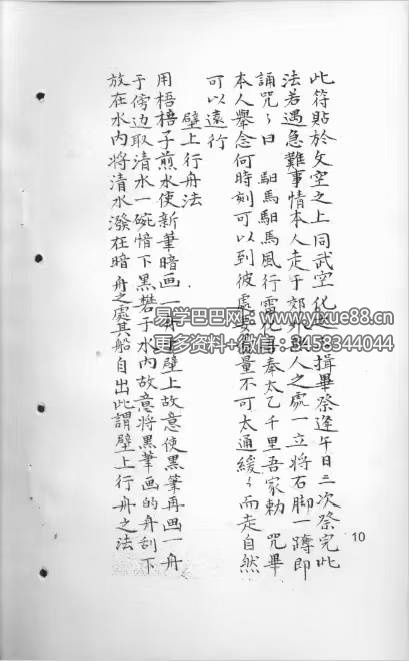 此符貼於文空之上同武空化 揖畢祭逢午日三次祭完此
法若遇急難事情本人走于郊外 人之處一立將石脚一蹲即
誦咒々曰 駔馬駔馬風行 奉太乙千里吾家勅 咒畢
本人舉念何時刻可以到彼處 量不可太通緩々而走自然
可以遠行
壁上行舟法
用梧棓子煎水使新筆暗画一 壁上故意使黑筆再画一舟
于傍边取清水一碗愔下黑礬于水內故意將黑筆画的舟刮下
放在水內將清水潑在暗舟之處其船自出此謂壁上行舟之法
10
易学巴巴网：www.yixue88.cn
更多资料+微信：3458344044